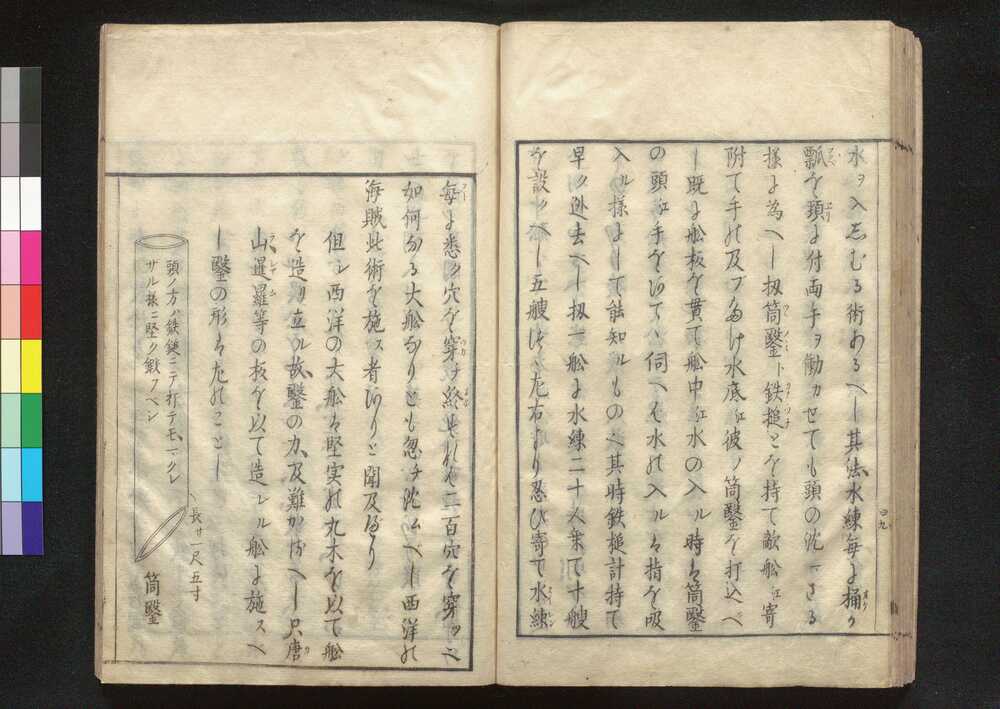 水ヲ入しむる術あるへし其法水練毎に桶か
瓢を頸に付両手ヲ働カせても頭の沈マさる
様に為へし扨筒鑿ト鉄槌とを持て敵船江寄
附て手の及フたけ水底江彼ノ筒鑿を打込へ
し既に舩板を貫て舩中江水の入ル時は筒鑿
の頭江手をあてヽ伺へは水の入ルは指を吸
入ル様にて能知ルもの也其時鉄槌計持て
早ク迯去へし扨一舩に水練二十人乗て十艘
を設クへし五艘ほと左右より忍ひ寄て水練
四九
毎に悉ク穴を穿チ終れは二百穴を穿ツ也
如何なる大舩なりとも忽チ沈ムへし西洋の
海賊此術を施ス者ありと聞及へり
但シ西洋の大舩は堅実の丸木を以て舩
を造り立ル故鑿の力及難かるへし只唐
山暹羅等の板を以て造レル舩に施スへ
し鑿の形は左のことし
頭ノ方ハ鉄鎚ニテ打テモマクレ
ザル様ニ堅ク鍛フベシ
長サ一尺五寸
筒鑿